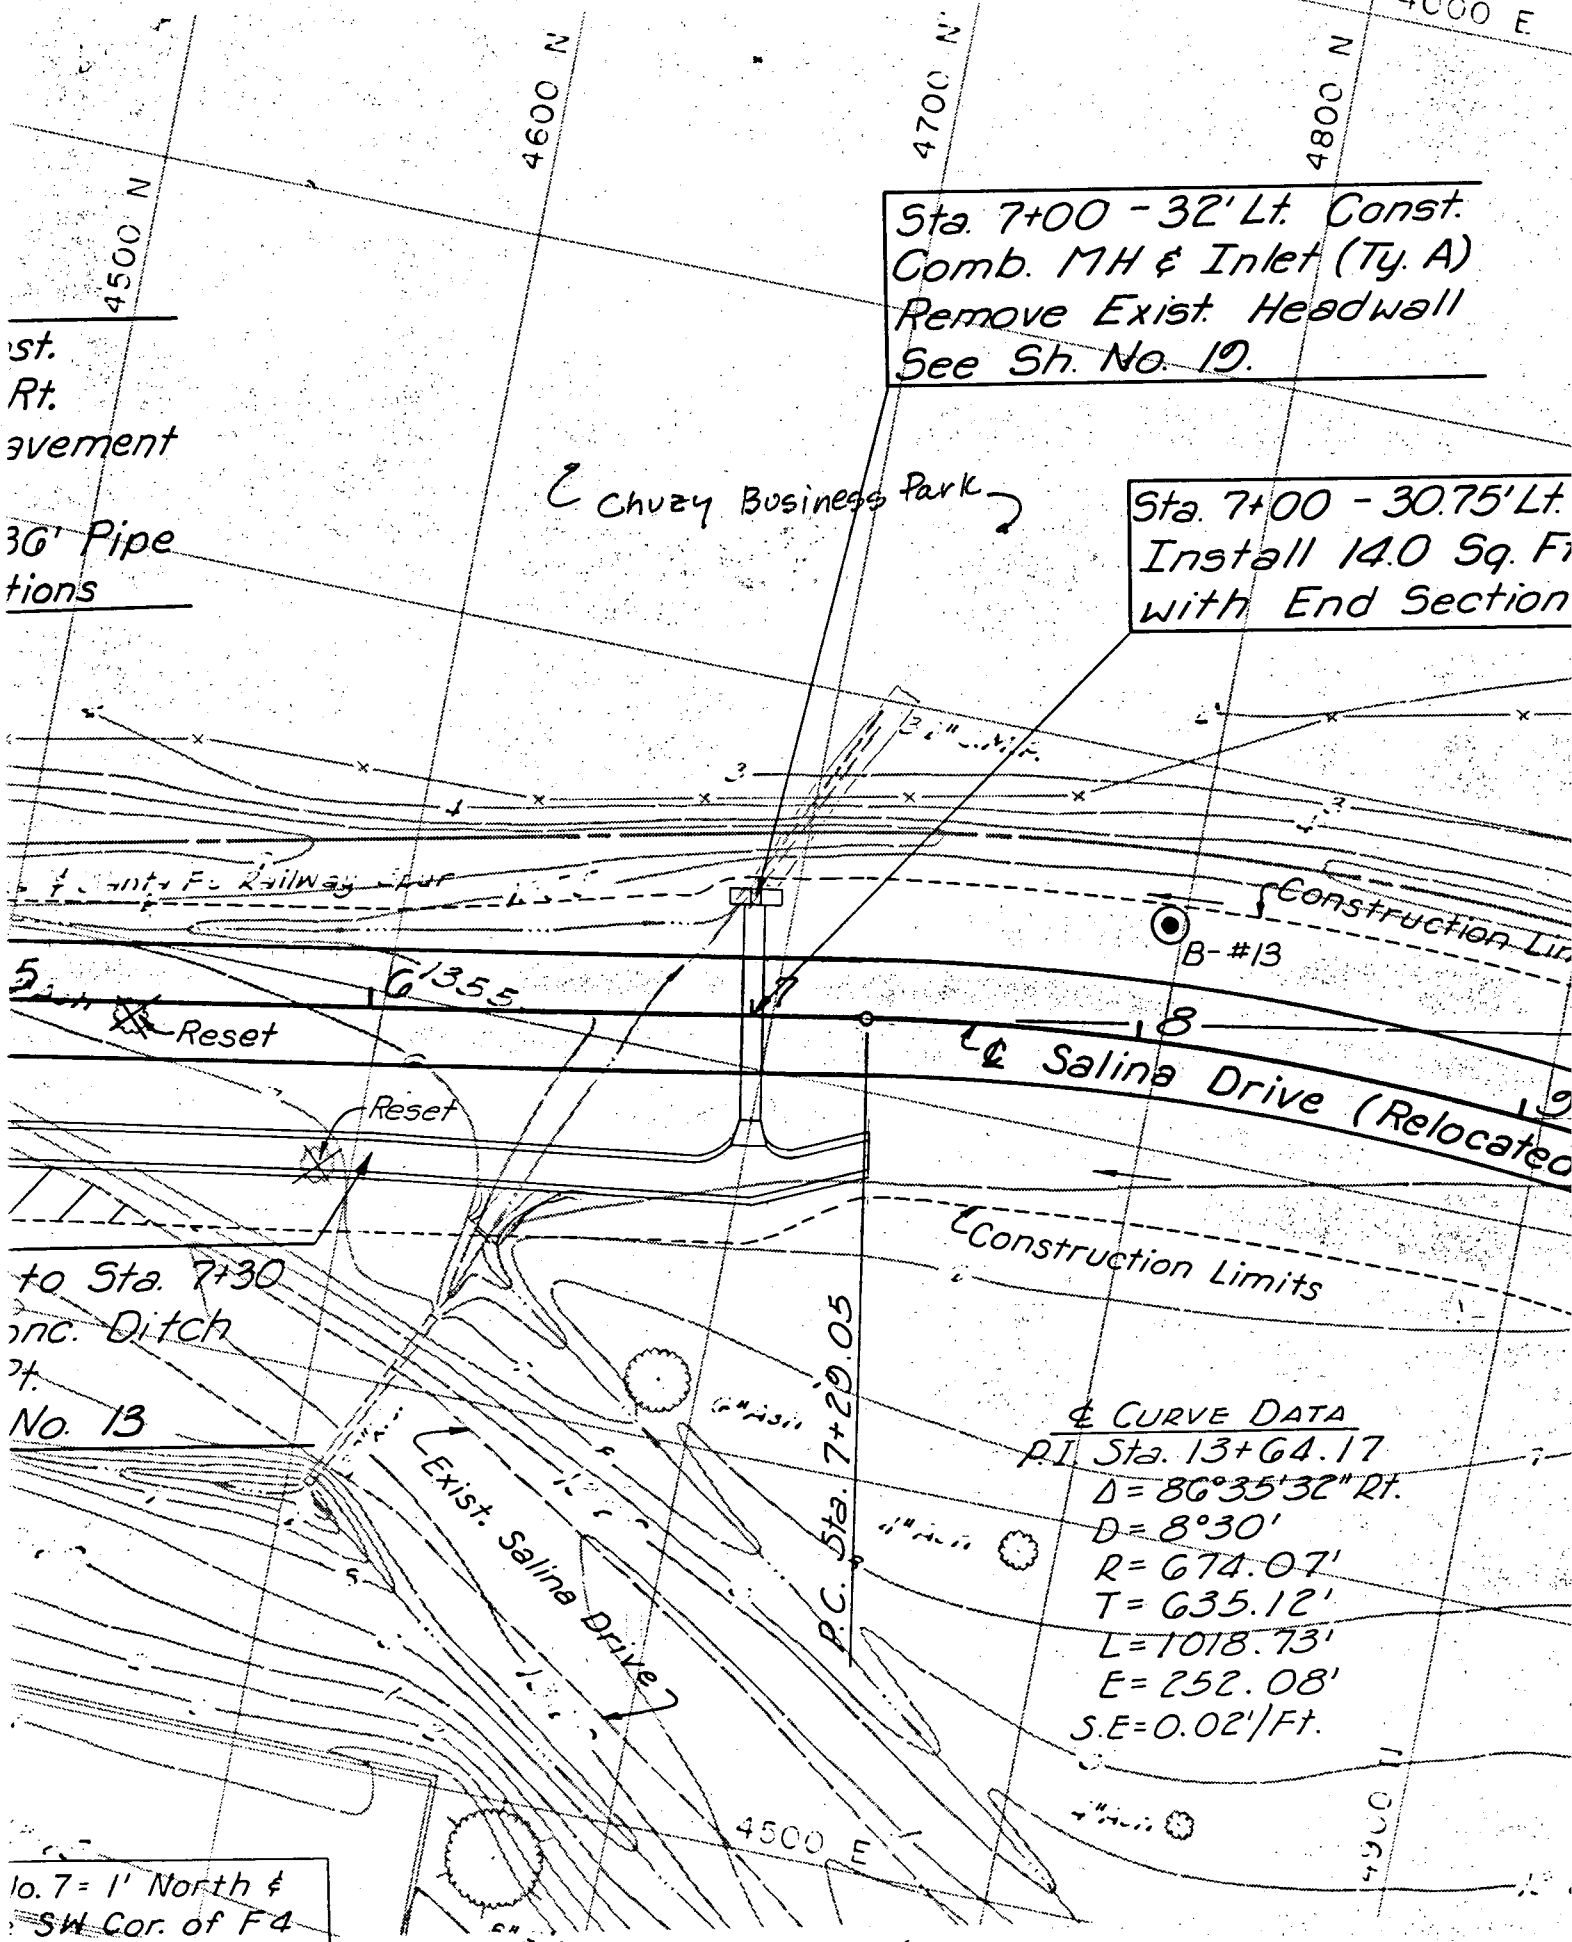 4000 E
4500 N
4600 N
4700 N
4800 N
Sta. 7+00 - 32' Lt. Const.
Comb. MH & Inlet (Ty. A)
Remove Exist. Headwall
See Sh. No. 19.
st.
Rt.
avement
36' Pipe
tions
Chuzy Business Park
Sta. 7+00 - 30.75' Lt.
Install 14.0 Sq. Ft
with End Section
3
Railway
Construction Lim
B-#13
5
6
1355
7
8
9
Reset
℄ Salina Drive (Relocated
Reset
Construction Limits
to Sta. 7+30
onc. Ditch
Pt.
No. 13
P.C. Sta. 7+29.05
Exist. Salina Drive
℄ CURVE DATA
P.I. Sta. 13+64.17
Δ = 86°35'32" Rt.
D = 8°30'
R = 674.07'
T = 635.12'
L = 1018.73'
E = 252.08'
S.E = 0.02'/Ft.
4500 E
4900 N
No. 7 = 1' North &
SW Cor. of F4